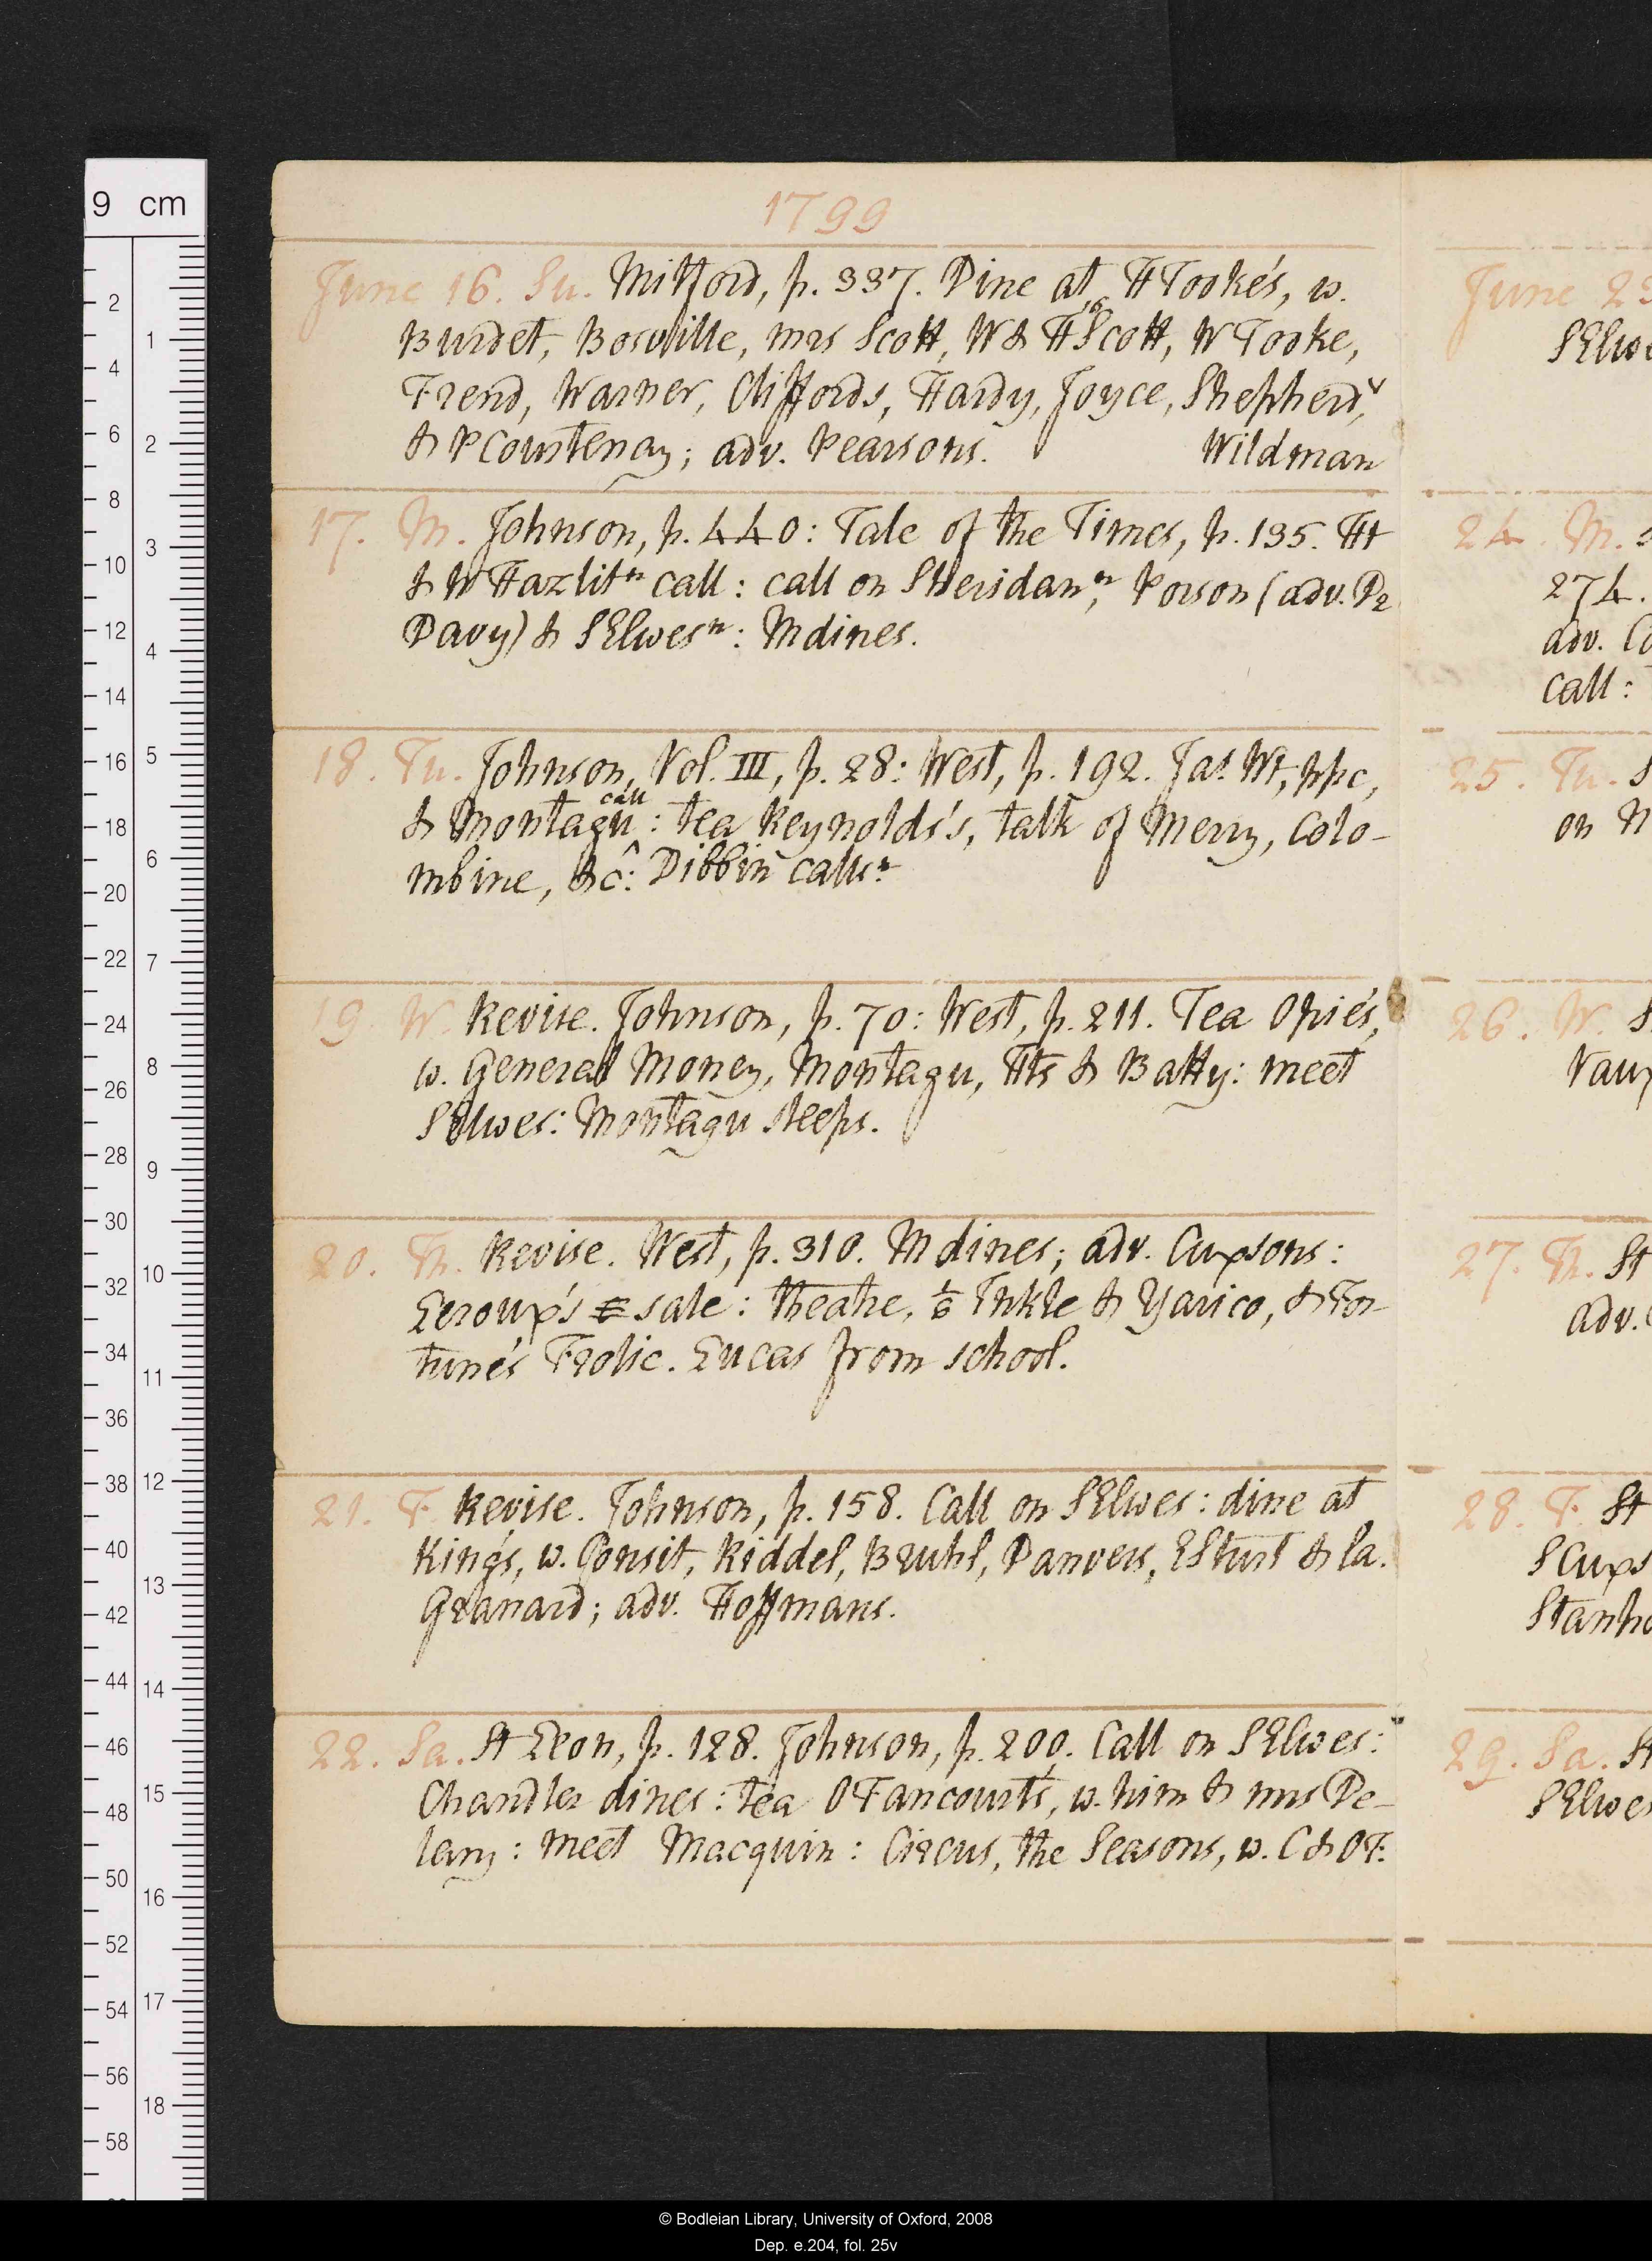 1799
June 16. Su. Mitford, p. 337. Dine at H Tooke's, w.
Burdet, Bosville, mrs Scott, W & H Scott, W Tooke,
Frend, Warner, Cliffords, Hardy, Joyce, Shepherd,
& P Courtenay; adv. Pearsons. Wildman
17. M. Johnson, p. 440: Tale of the Times, p. 135. Ht
& W Hazlit n call: call on Sheridan n, Porson (adv. Dr
Davy) & S Elwes n: M dines.
18. Tu. Johnson, Vol. III, p. 28: West, p. 192. Jas. Wt, ppc,
& Montagu call: tea Reynolds's, talk of Merry, Colo-
mbine, &c: Dibbin calls n
19. W. Revise. Johnson, p. 70: West, p. 211. Tea Opie's,
w. General Money, Montagu, Hts & Batty: meet
S Elwes: Montagu sleeps.
20. Th. Revise. West, p. 310. M dines; adv. Cuxsons:
Leroux's sale: theatre, 1/6 Inkle & Yarico, & For-
tune's Frolic. Lucas from school.
21. F. Revise. Johnson, p. 158. Call on S Elwes: dine at
King's, w. Consit, Riddel, Bruhl, Danvers, L Sturt & la.
Granard; adv. Hoffmans.
22. Sa. St Leon, p. 128. Johnson, p. 200. Call on S Elwes:
Chandler dines: tea O Fancourt's, w. him & mrs De-
lany: meet Macquin: Circus, the Seasons, w. C & OF.
June 23
S Elwe
24. M.
274.
adv. Co
call:
25. Tu. S
on M
26. W. S
Vaux
27. Th. St
adv. C
28. F. St
S Cuxs
Stanho
29. Sa. St
S Elwes
9 cm
2 4 6 8 10 12 14 16 18 20 22 24 26 28 30 32 34 36 38 40 42 44 46 48 50 52 54 56 58
1 2 3 4 5 6 7 8 9 10 11 12 13 14 15 16 17 18
© Bodleian Library, University of Oxford, 2008
Dep. e.204, fol. 25v